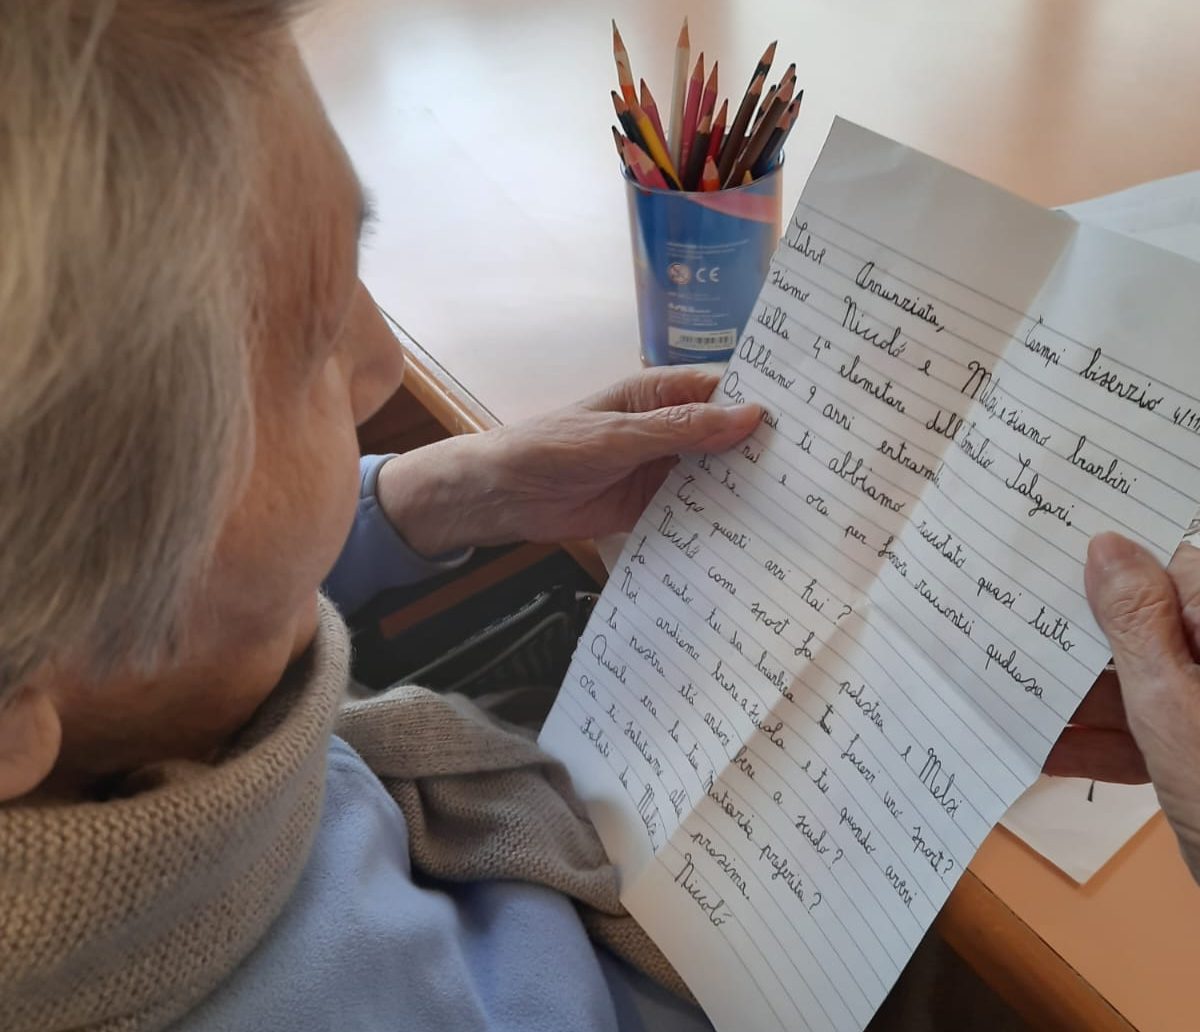 CE
Campi bisenzio 4/11
Salve Annunziata,
siamo Niccoló e Melsi, e siamo bambini
della 4ª elemetare dell'Emilio Salgari.
Abbiamo 9 anni entrambi
Ora mai ti abbiamo racotato quasi tutto
noi e ora per favore
di te.
Tipo quanti anni hai?
Niccoló come sport fa palestra e Melsi
fa nuoto tu da bambina facevi uno sport?
Noi andiamo bene a scuola e tu quando avevi
la nostra etá andavi bene a
Quale era la tua materia preferita?
Ora ti salutiamo alla prossima.
Saluti da Melsi Niccoló